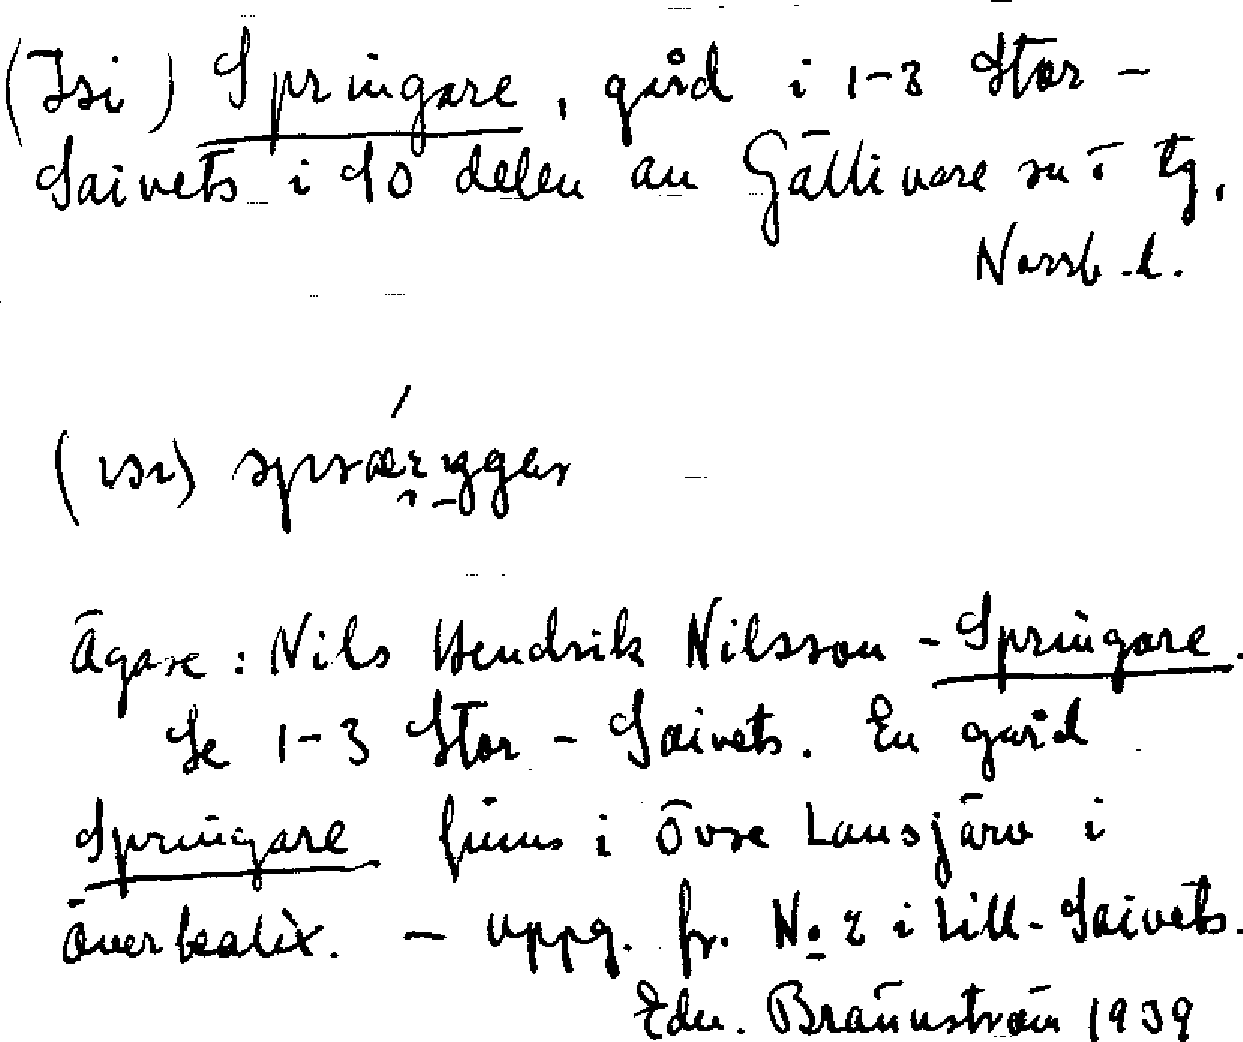 (Isi) Springare, gård i 1-3 Stor-
Saivets i SO delen av Gällivare sn o tg.
Norrb. l.
(isi)
Ägare: Nils Hendrik Nilsson-Springare.
Se 1-3 Stor-Saivets. En gård
Springare finns i Övre Lansjärv i
Överkalix. — Uppg. fr. No 2 i Lill-Saivets.
Edv. Brännström 1939